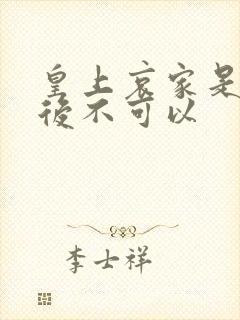 皇上哀家是
後不可以
李士祥